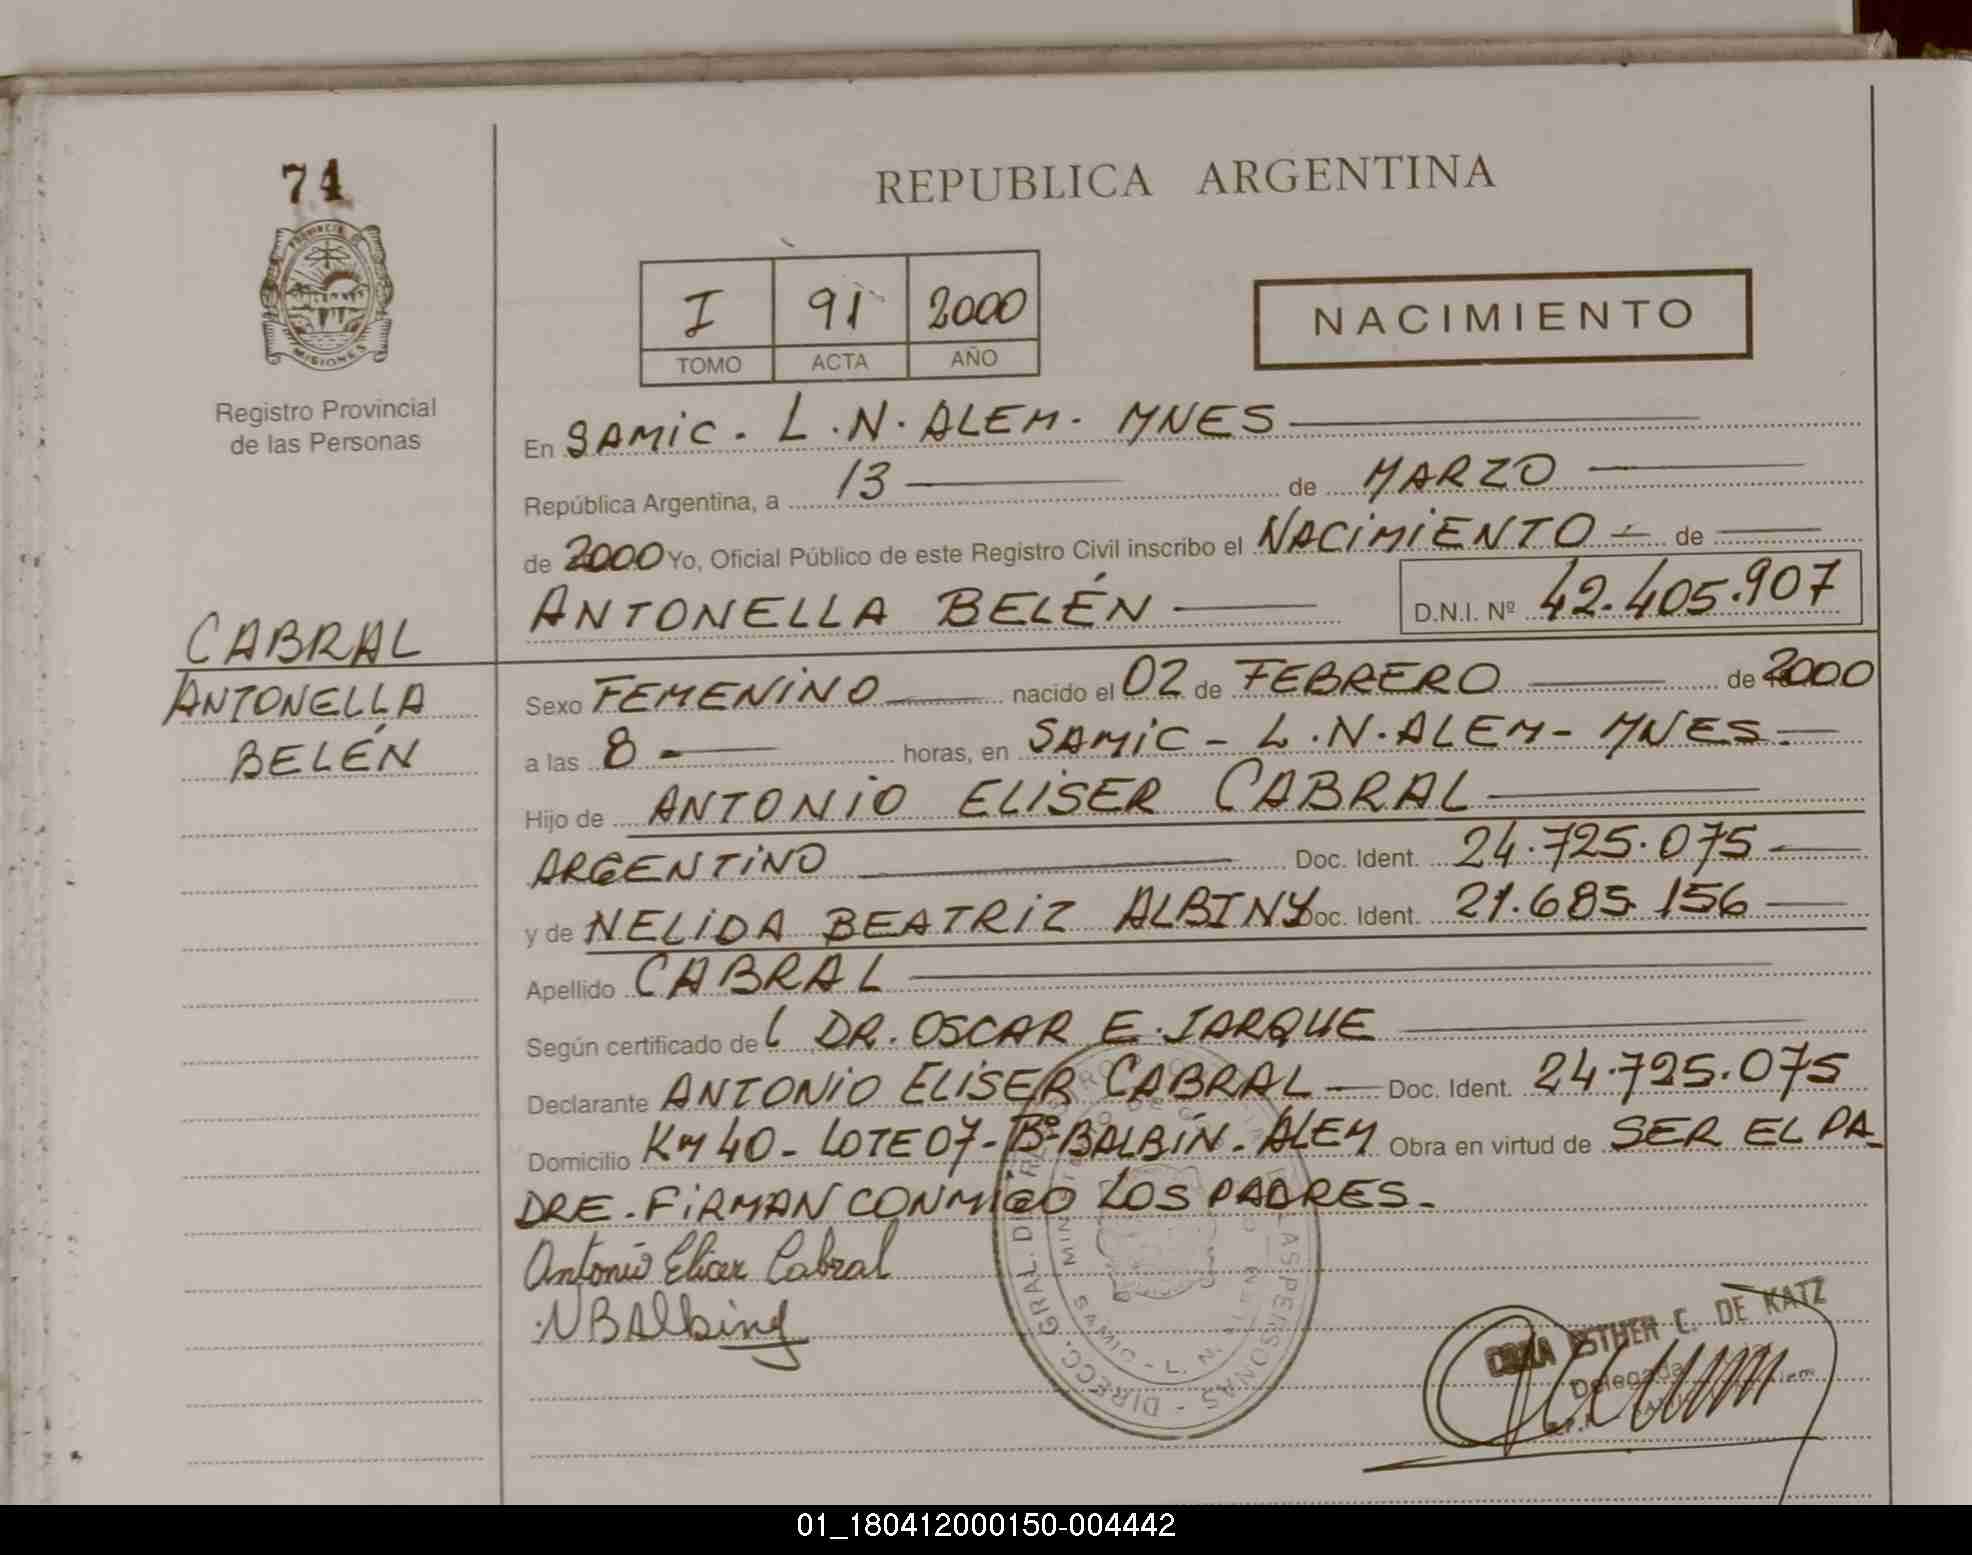 74
PROVINCIA DE
MISIONES
Registro Provincial
de las Personas
CABRAL
ANTONELLA
BELÉN
REPUBLICA ARGENTINA
I 91 2000
TOMO ACTA AÑO
NACIMIENTO
En SAMIC. L.N.ALEM. MNES
República Argentina, a 13 de MARZO
de 2000 Yo, Oficial Público de este Registro Civil inscribo el NACIMIENTO de
ANTONELLA BELÉN D.N.I. Nº 42.405.907
Sexo FEMENINO nacido el 02 de FEBRERO de 2000
a las 8 horas, en SAMIC - L.N.ALEM - MNES.
Hijo de ANTONIO ELISER CABRAL
ARGENTINO Doc. Ident. 24.725.075
y de NELIDA BEATRIZ ALBINY Doc. Ident. 21.685.156
Apellido CABRAL
Según certificado del DR. OSCAR E. JARQUE
Declarante ANTONIO ELISER CABRAL Doc. Ident. 24.725.075
Domicilio KM 40 - LOTE 07 - Bº BALBÍN - ALEM Obra en virtud de SER EL PA-
DRE. FIRMAN CONMIGO LOS PADRES.
Antonio Elicer Cabral
N B Albiny
ESTHER C. DE KATZ
Delegada
01_180412000150-004442